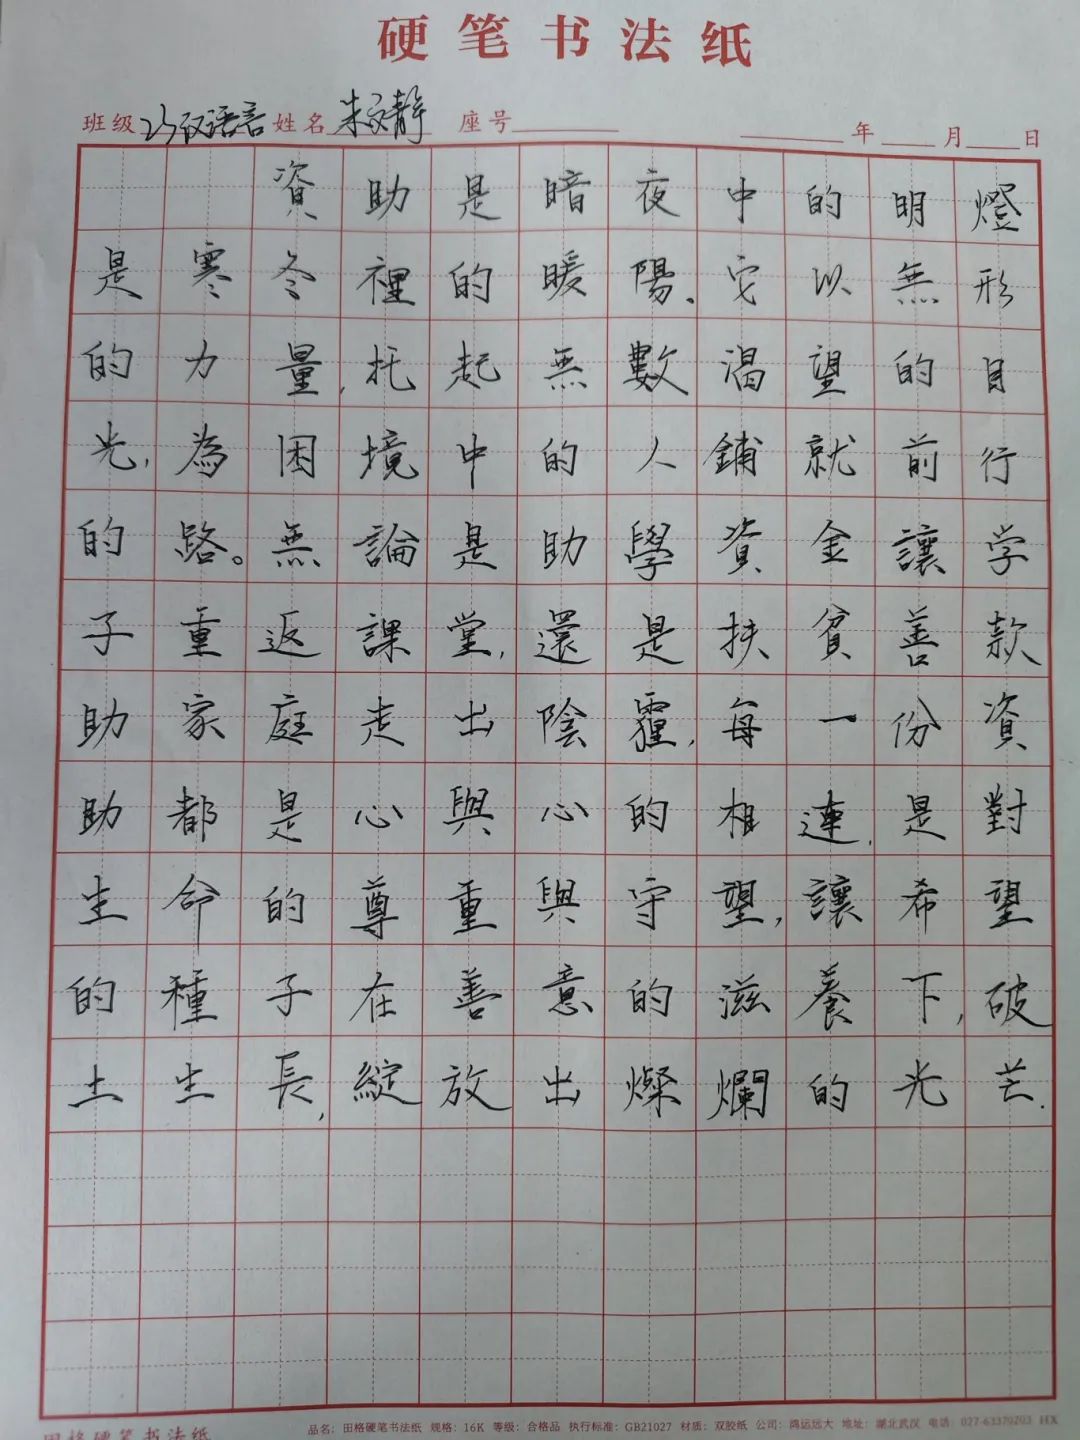 硬笔书法纸
班级 23汉语言 姓名 朱文静 座号 年 月 日
資助是暗夜中的明燈
是寒冬裡的暖陽、它以無形
的力量,托起無數渴望的目
光,為困境中的人鋪就前行
的路。無論是助學資金讓学
子重返課堂,還是扶貧善款
助家庭走出陰霾,每一份資
助都是心與心的相連,是對
生命的尊重與守望,讓希望
的種子在善意的滋養下,破
土生長,綻放出燦爛的光芒.
田格硬笔书法纸 品名:田格硬笔书法纸 规格:16K 等级:合格品 执行标准:GB21027 材质:双胶纸 公司:鸿运远大 地址:湖北武汉 电话:027-63370203 HX